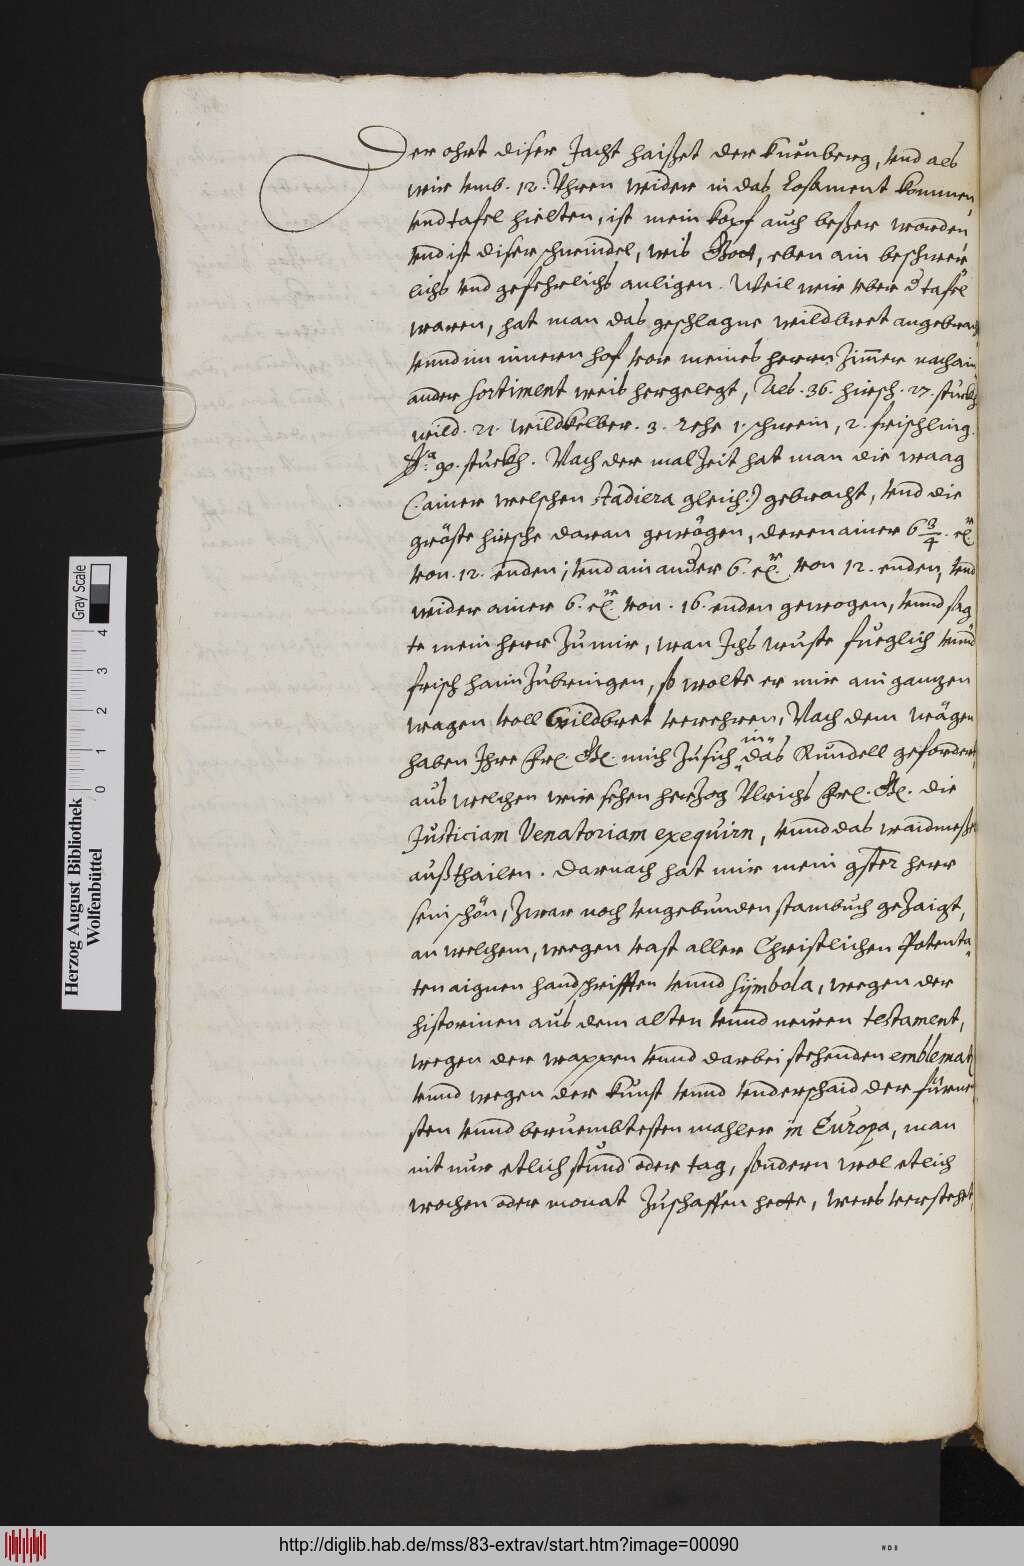 Der ohrt diser Jacht haißet der Kuenberg, vnd als
wir vmb. 12. Vhren wider in das Losament kommen,
vnd tafel hielten, ist mein kopf auch beßer worden
vnd ist diser schwindel, wis Gott, eben ain beschwer
lichs vnd gefehrlichs anligen. Weil wir vber d tafel
waren, hat man das geschlagne wildbret angebracht
vnnd im innern hof vor meines herrn Zimmer nach ain
ander Sortiment weis hergelegt, Als. 36. hirsch. 27. stuckh
wild. 21. wildkelber. 3. Rehe 1. schwein, 2. frischling.
Sa. 90. stuckh. Nach der malzeit hat man die waag
(: ainer welschen stadiera gleich:) gebracht, vnd die
gröste hirsche daran gewögen, deren ainer 6 3/4. cr
von. 12. enden; vnd ain ander 6. cr von 12. enden, vnd
wider ainer 6. cr von. 16. enden gewogen, vnnd sag
te mein herr zu mir, wan Jchs wuste fueglich vnnd
frisch haim zubringen, so wolte er mir ain ganzen
wagen voll Wildbret verehren, Nach dem wägen
haben Jhre Frl. Gl. mich zu sich in das Rundell gefordert,
aus welchen wir sehen herzog Vlrichs Frl. Gl. die
Justiciam Venatoriam exequirn, vnnd das waidmeßer
außthailen. Darnach hat mir mein gster herr
sein schön, zwar noch vngebunden stambuch gezaigt,
an welchem, wegen vast aller Christlichen Potenta-
ten aignen handschrifften vnnd Sÿmbola, wegen der
historinen aus dem alten vnnd neuen testament,
wegen der wappen vnnd darbei stehenden emblemat
vnnd wegen der kunst vnnd vnderschaid der fürne
sten vnnd beruembtesten mahler in Europa, man
nit nur etlich stund oder tag, sondern wol etlich
wochen oder monat zuschaffen hette, wers verstehet,
Herzog August Bibliothek
Wolfenbüttel
0 1 2 3 4
Gray Scale
http://diglib.hab.de/mss/83-extrav/start.htm?image=00090